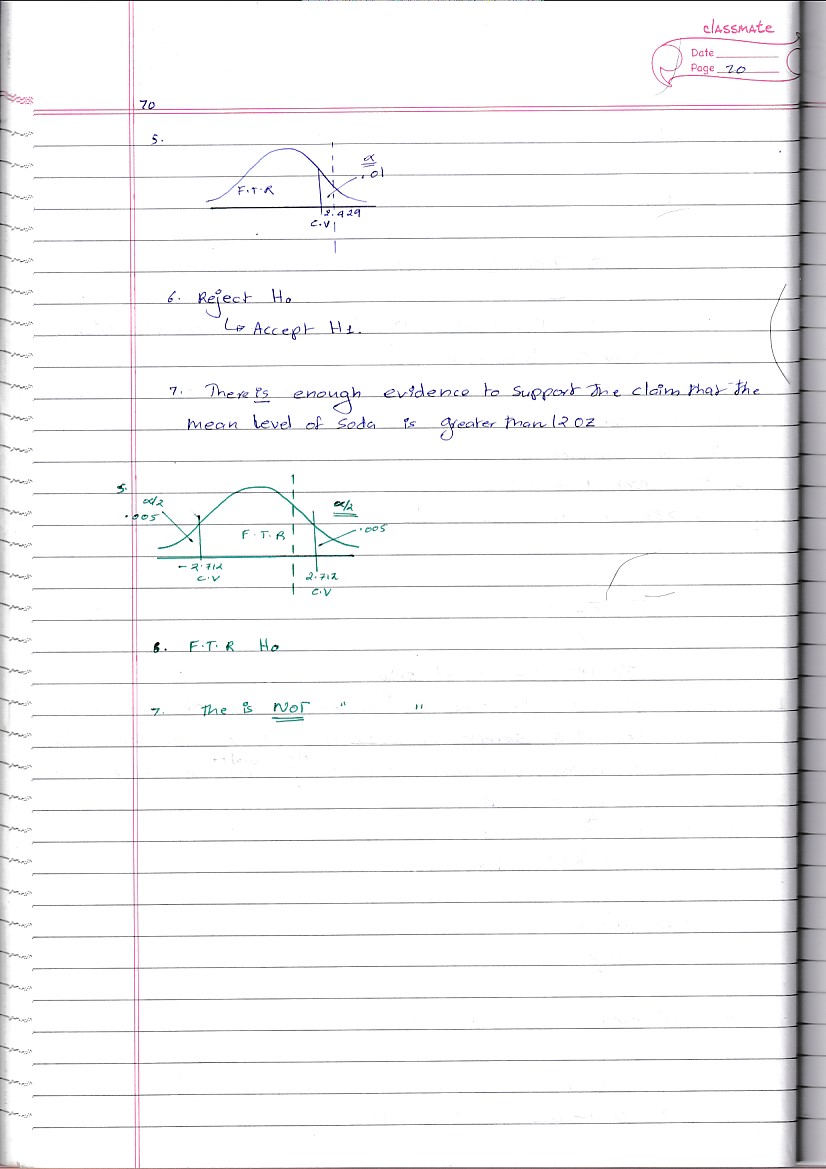 classmate
Date
Page 70
70
5.
α
.01
F.T.R
2.429
C.V
6. Reject H₀
↳ Accept H1.
7. There is enough evidence to support the claim that the
mean level of soda is greater than 12 oz
5.
α/2
.005
α/2
.005
F.T.R
-2.712
C.V
2.712
C.V
6. F.T.R H₀
7. The is NOT " "